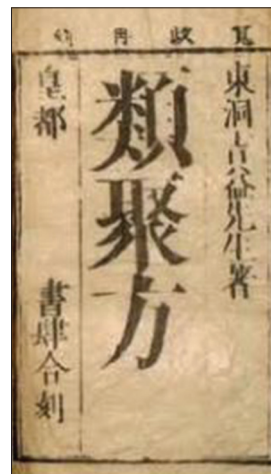 政再
東洞吉益先生著
類聚方
皇都 書肆合刻